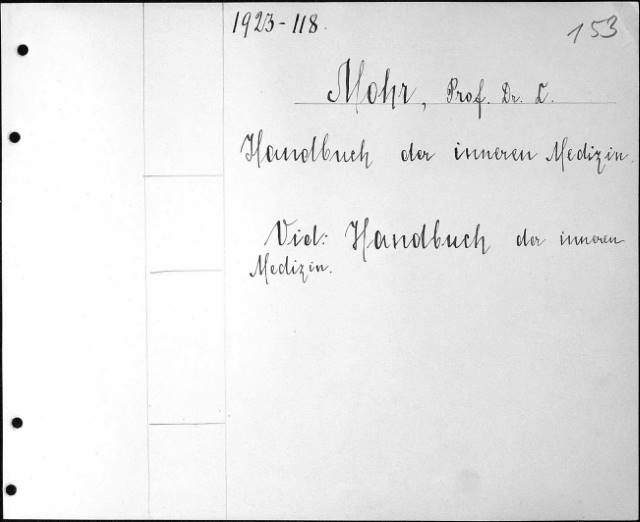 1923-118.
153
Mohr, Prof. Dr. L.
Handbuch der inneren Medizin.
Vid: Handbuch der inneren
Medizin.